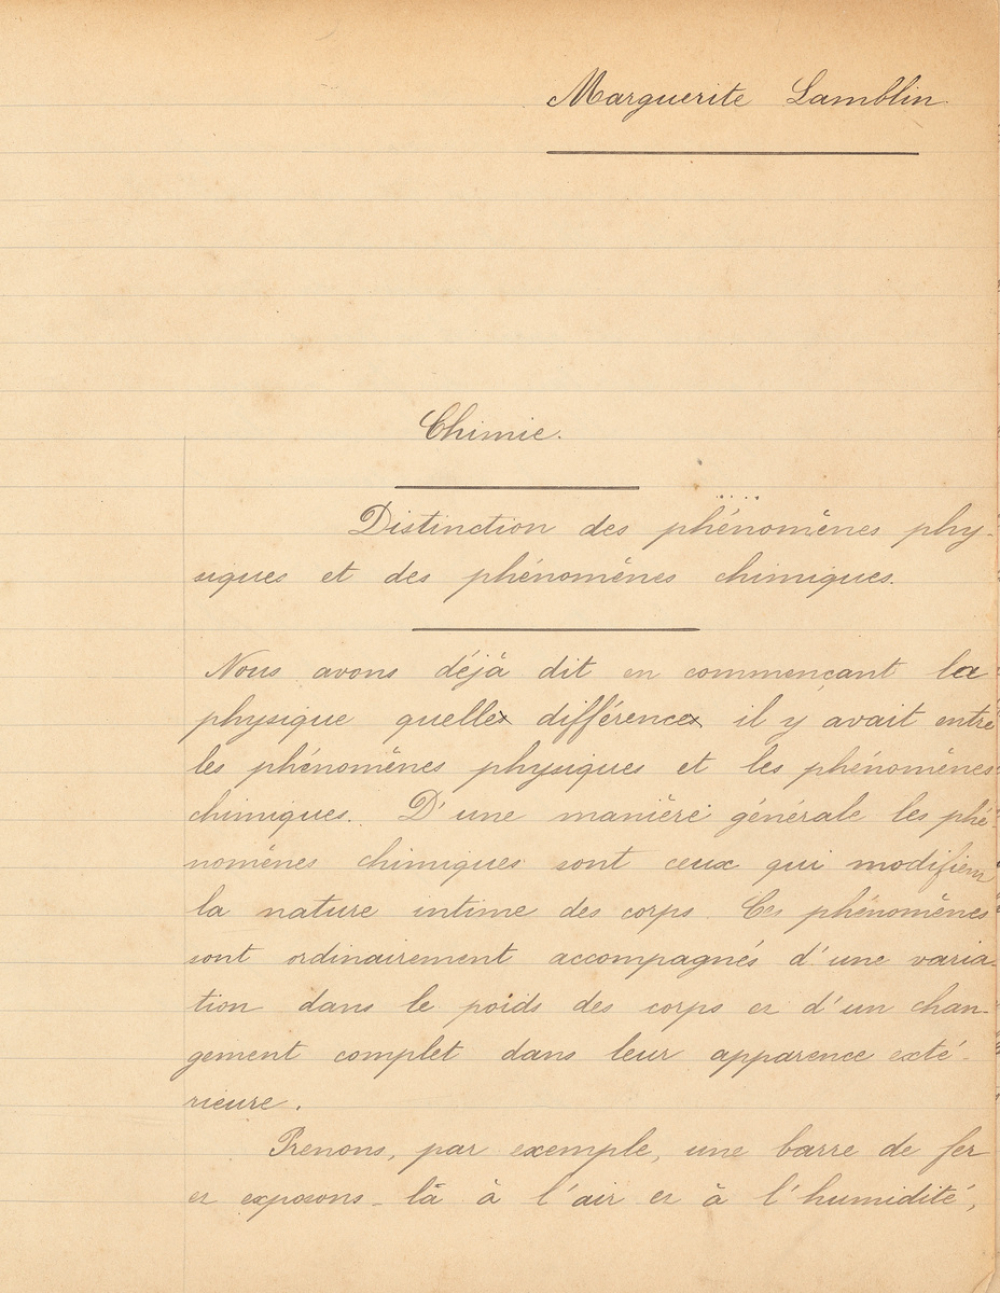 Marguerite Lamblin
Chimie.
Distinction des phénomènes phy-
siques et des phénomènes chimiques.
Nous avons déjà dit en commençant la
physique quelle différence il y avait entre
les phénomènes physiques et les phénomènes
chimiques. D'une manière générale les phé
nomènes chimiques sont ceux qui modifient
la nature intime des corps. Ces phénomènes
sont ordinairement accompagnés d'une varia-
tion dans le poids des corps et d'un chan-
gement complet dans leur apparence exté-
rieure.
Prenons, par exemple, une barre de fer
et exposons-là à l'air et à l'humidité,